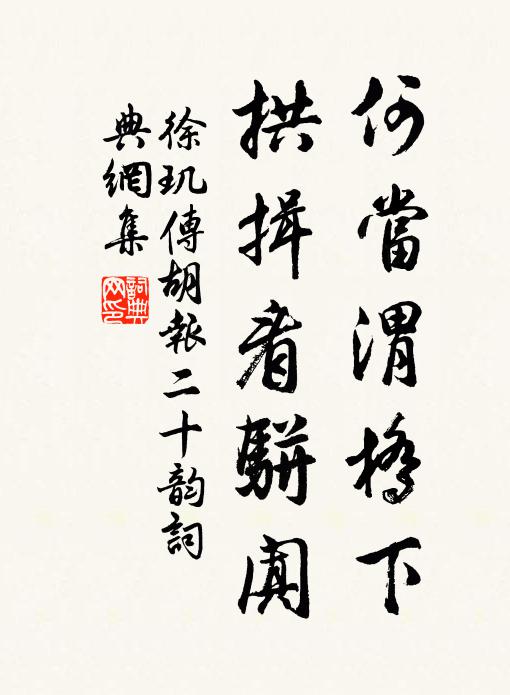 何當渭橋下
拱揖看駢闐
徐玑傳胡報二十韵詞
典網集
詞典网印